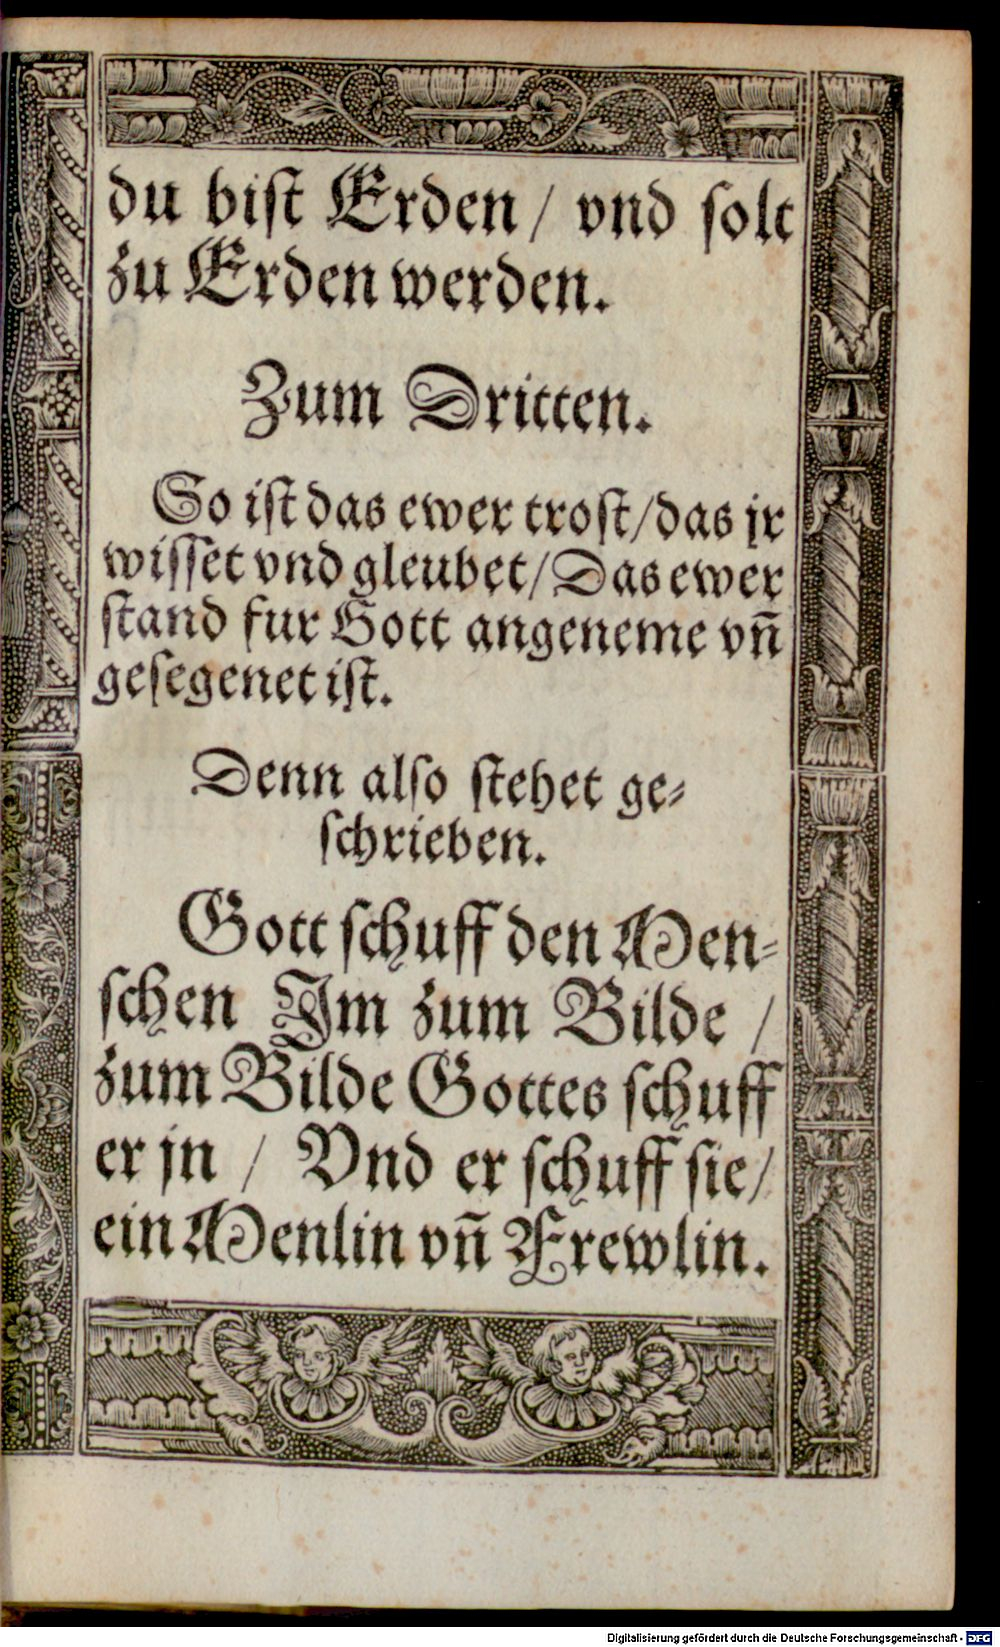 du biſt Erden / vnd ſolt
zu Erden werden.
Zum Dritten.
So iſt das ewer troſt/das jr
wiſſet vnd gleubet/Das ewer
ſtand fur Gott angeneme vñ
geſegenet iſt.
Denn alſo ſtehet ge-
ſchrieben.
Gott ſchuff den Men-
ſchen Jm zum Bilde /
zum Bilde Gottes ſchuff
er jn / Vnd er ſchuff ſie/
ein Menlin vñ Frewlin.
Digitalisierung gefördert durch die Deutsche Forschungsgemeinschaft - DFG